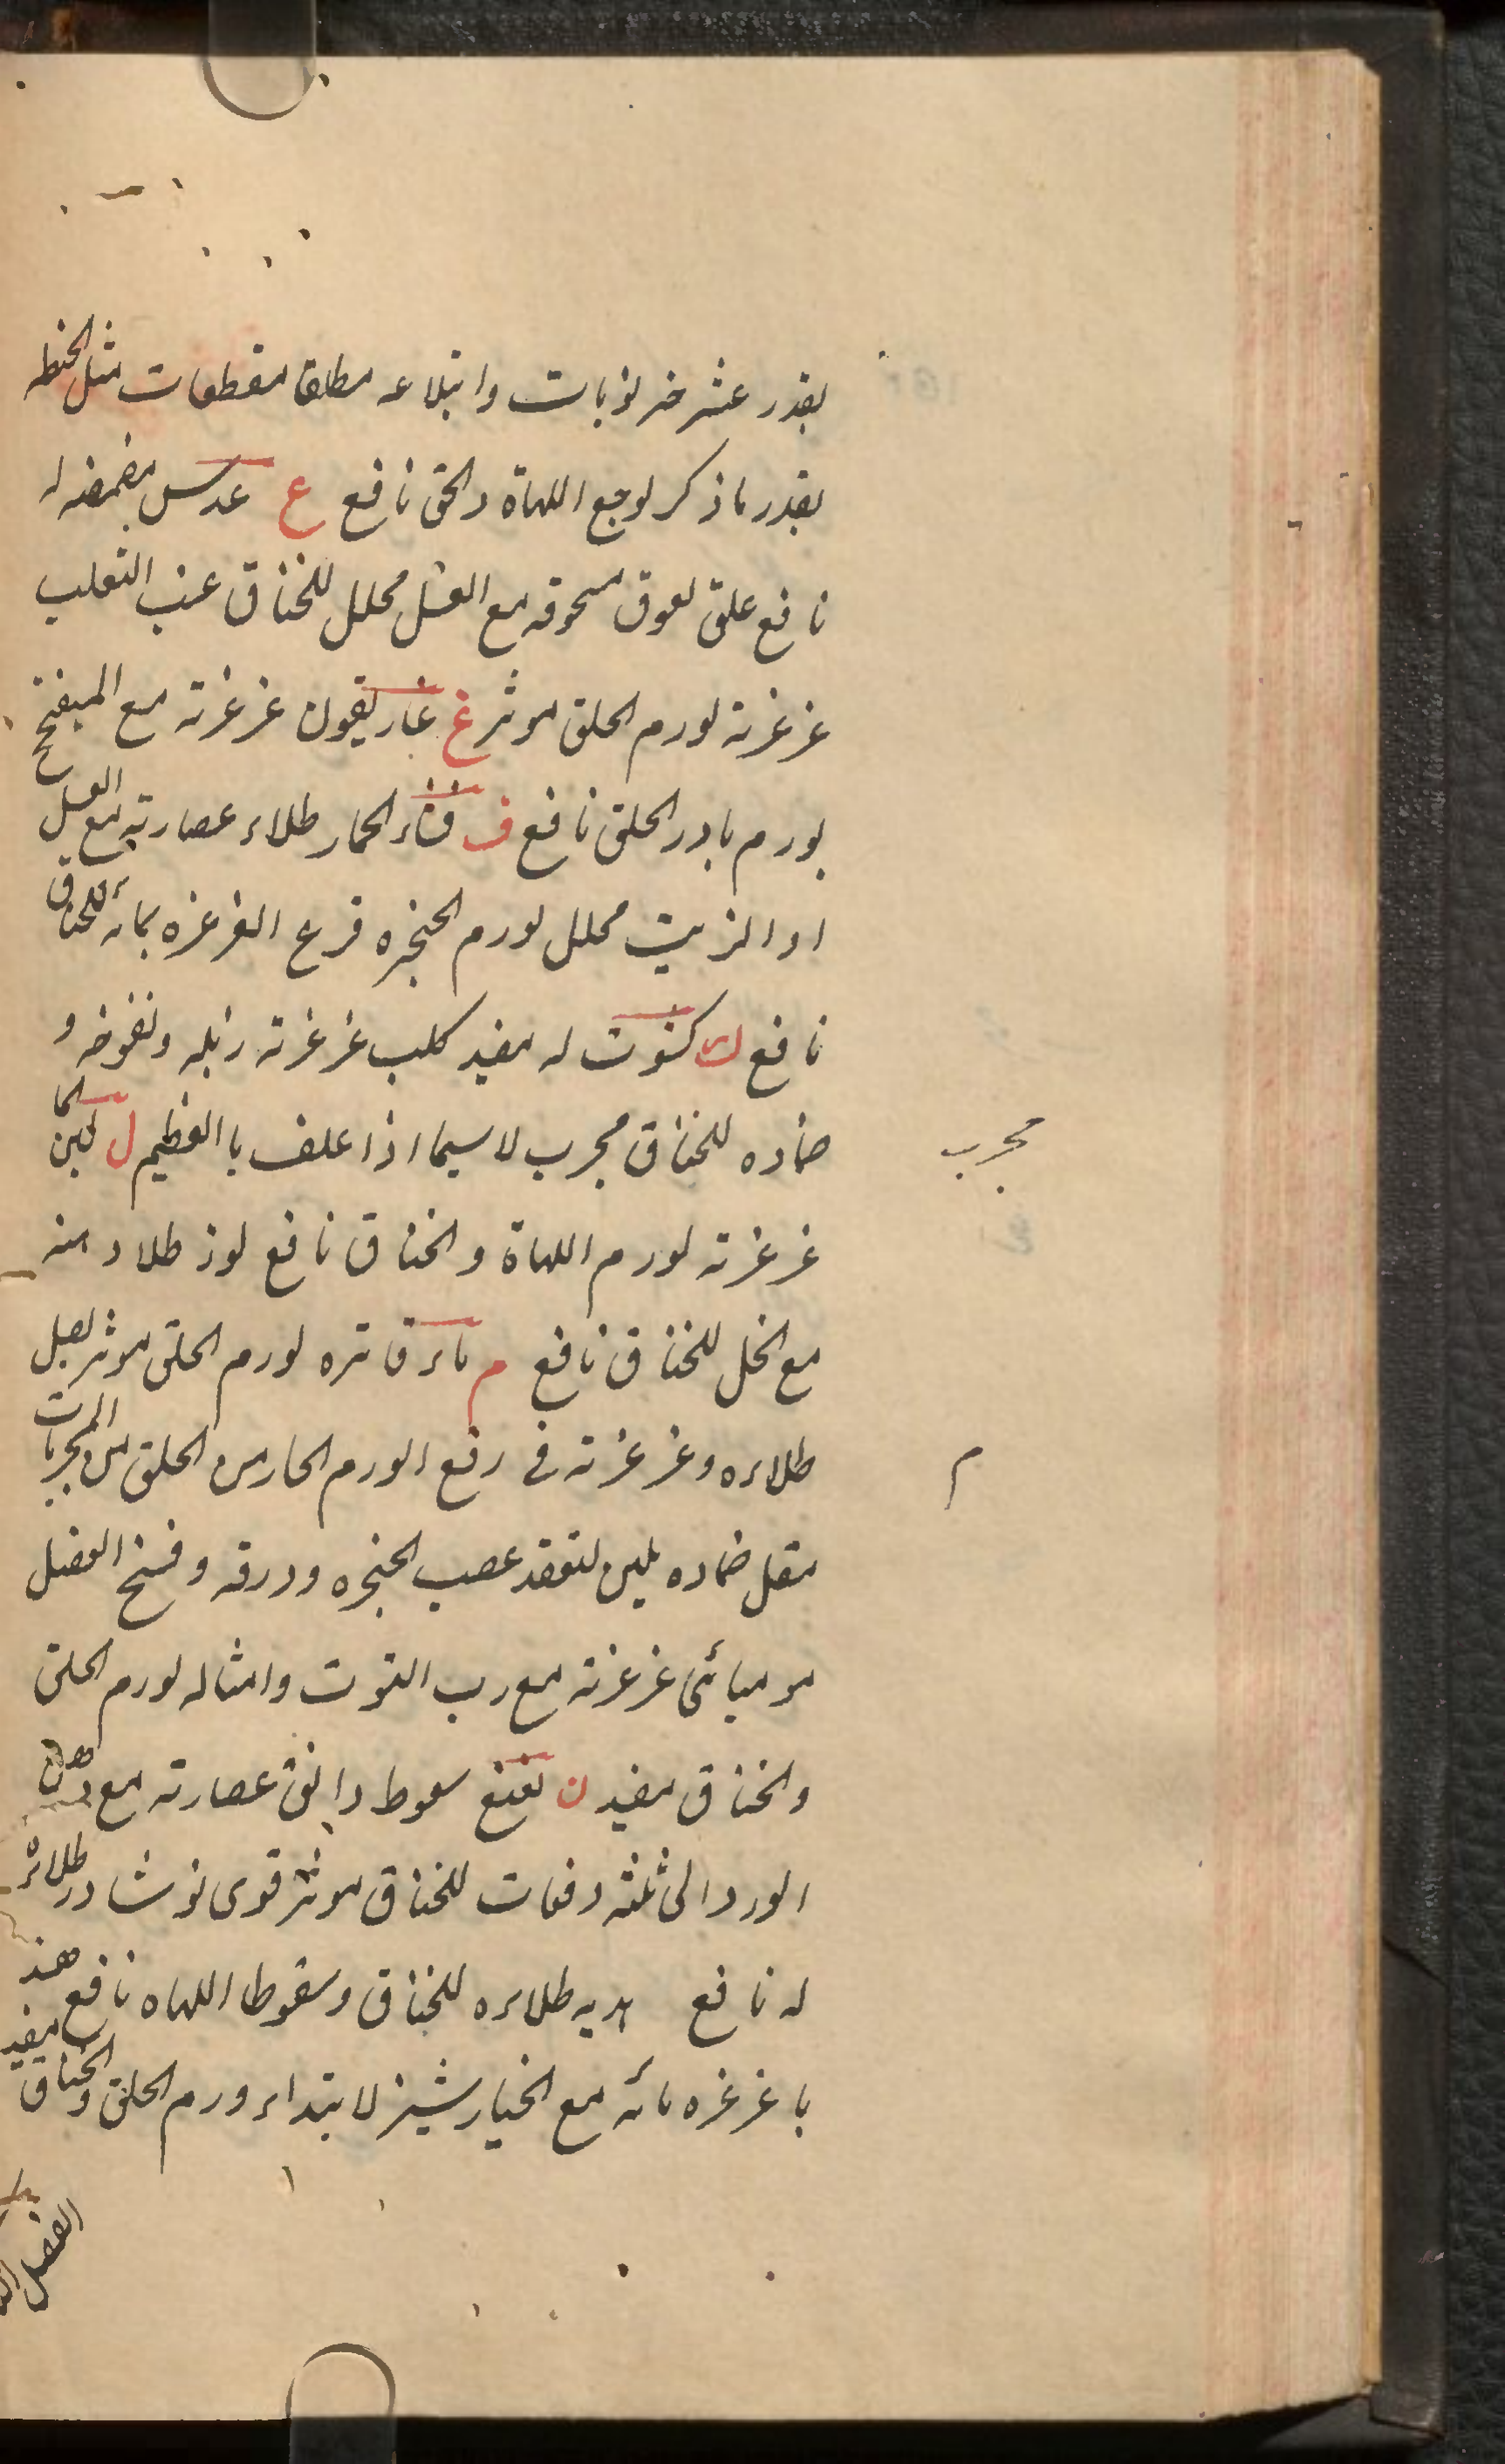 بقدر عشر خرنوبات وابتلاعه مطلقا مقطعات مثل الحنطه
بقدر ما ذكر لوجع اللهاة والحق نافع ع عدس مضمضه له
نافع علق لعوق مسحوقه مع العسل محلل للخناق عنب الثعلب
غرغرته لورم الحلق موثر غ غاريقون غرغرته مع الميفختج
بورم بادر الحلق نافع ق قثاء الحمار طلاء عصارته مع العسل
او الزيت محلل لورم الحنجره قرع الغرغره بمائه للخناق
نافع ك كشوت له مفيد كلب غرغرته زبله ونفوخه و
ضماده للخناق مجرب لا سيما اذا علف با العظيم ل لبن
مجرب
غرغرته لورم اللهاة والخناق نافع لوز طلاء منه
مع الخل للخناق نافع م ماء فاتره لورم الحلق موثر بصل
طلاءه وغرغرته فى رفع الورم الحار من الحلق من المجربات
م
مقل ضماده يلين لتعقد عصب الحنجره وورقه وفسخ العضل
موميائى غرغرته مع رب التوت وامثاله لورم الحلق
والخناق مفيد ن نعنع سعوط دانق عصارته مع دهن
الورد الى ثلثه دفعات للخناق موثر قوى نوشادر طلائه
له نافع طلاءه للخناق وسقوط اللهاه نافع
با غرغره مائه مع الخيار شنبر لابتداء ورم الحلق والخناق مفيد
الفصل